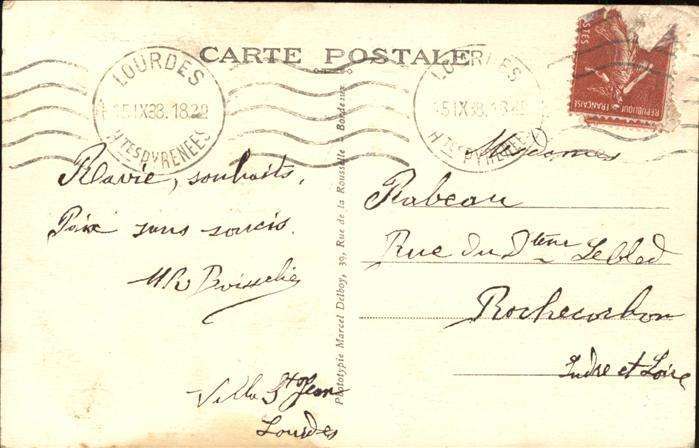 CARTE POSTALE
LOURDES
15 IX 38. 18
HTES PYRENEES
LOURDES
15 IX 38. 18
HTES PYRENEES
REPUBLIQUE FRANÇAISE
Ravie, souhaits,
Paix sans soucis.
MR
Villa St Jean
Lourdes
Phototypie Marcel Delboy, 39, Rue de la Rousselle - Bordeaux
Mesdames
Rabeau
Rue du Dr Lebled
Rochecorbon
Indre et Loire